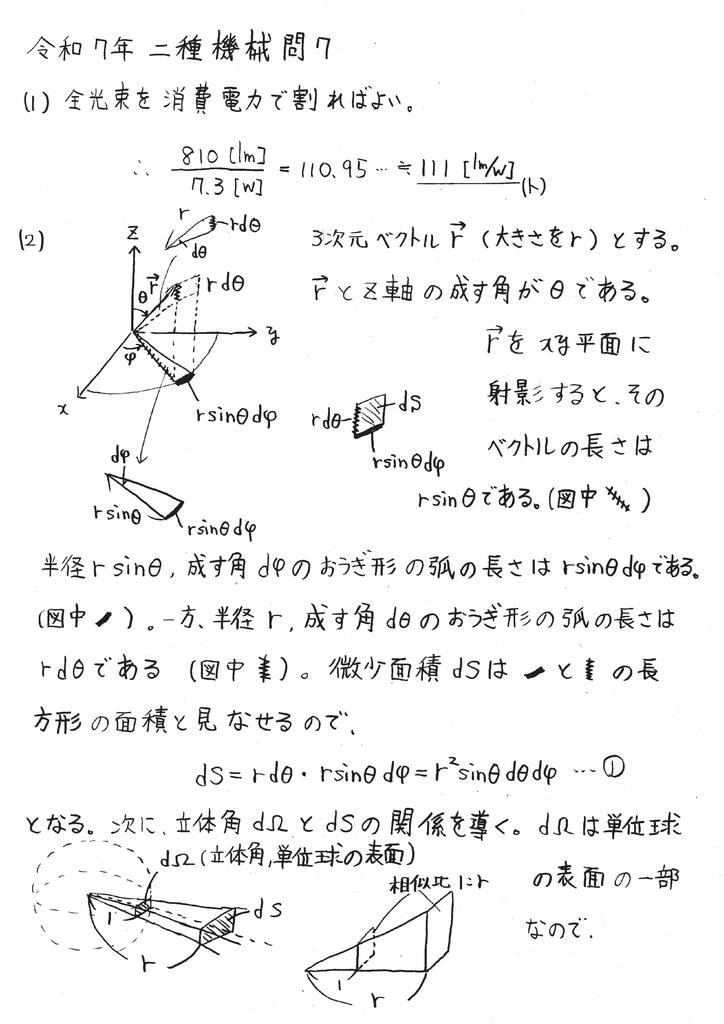 令和7年 二種機械問7
(1) 全光束を消費電力で割ればよい。
∴ 810 [lm] / 7.3 [W] = 110.95 … ≒ 111 [lm/W] (ト)
(2)
r
rdθ
dθ
z
θ
r→
rdθ
y
φ
x
rsinθdφ
dφ
rsinθ
rsinθdφ
3次元ベクトル r→ (大きさをr) とする。
r→ と z軸の成す角がθである。
r→ を xy平面に
射影すると、その
ベクトルの長さは
rsinθである。(図中 )
rdθ
dS
rsinθdφ
半径 r sinθ, 成す角 dφ のおうぎ形の弧の長さは rsinθdφである。
(図中 )。一方、半径 r, 成す角 dθ のおうぎ形の弧の長さは
rdθである (図中 )。微少面積 dSは と の長
方形の面積と見なせるので、
dS = rdθ・rsinθdφ = r²sinθdθdφ … ①
となる。次に、立体角 dΩ と dS の関係を導く。dΩは単位球
dΩ (立体角, 単位球の表面)
1
dS
r
相似比 1:r
1
r
の表面の一部
なので、